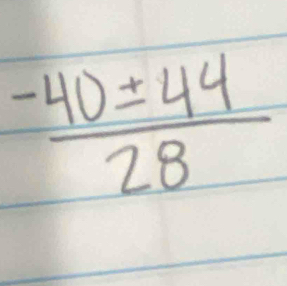 -40 ± 44
28